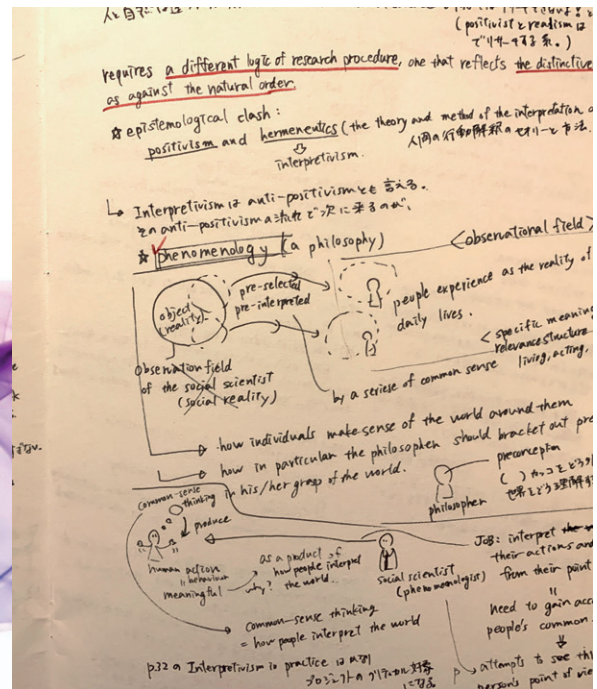 (positivistとrealismは
でリサーチする系。)
requires a different logic of research procedure, one that reflects the distinctive
as against the natural order
☆ epistemological clash :
positivism and hermeneutics (the theory and method of the interpretation
人間の行動解釈のセオリーと方法.
⇩
interpretivism.
Interpretivism は anti-positivism とも言える。
その anti-positivism の流れで次に来るのが、
☆ phenomenology (a philosophy)
<observational field>
object
(reality)
pre-selected
pre-interpreted
people experience as the reality of
daily lives.
observation field
of the social scientist
(social reality)
<specific meaning
relevance structure
living, acting,
by a seriese of common sense
how individuals make sense of the world around them
how in particular the philosopher should bracket out pre
in his/her grasp of the world.
preconception
philosopher
common-sense
thinking
produce
human action
= behaviour
meaningful
as a product of
how people interpret
why? the world.
social scientist
(phenomenologist)
JOB: interpret
their actions and
from their point
need to gain acc
people's common
⇩
attempts to see thi
person's point of vie
common-sense thinking
= how people interpret the world
p.32 の Interpretivism in practice は
プロジェクトの